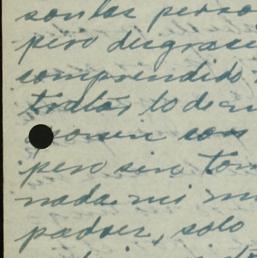 son las perso
pero desgrasi
comprendido
tratar lo de
ponen con
pero sin tom
nada mi m
padser, solo